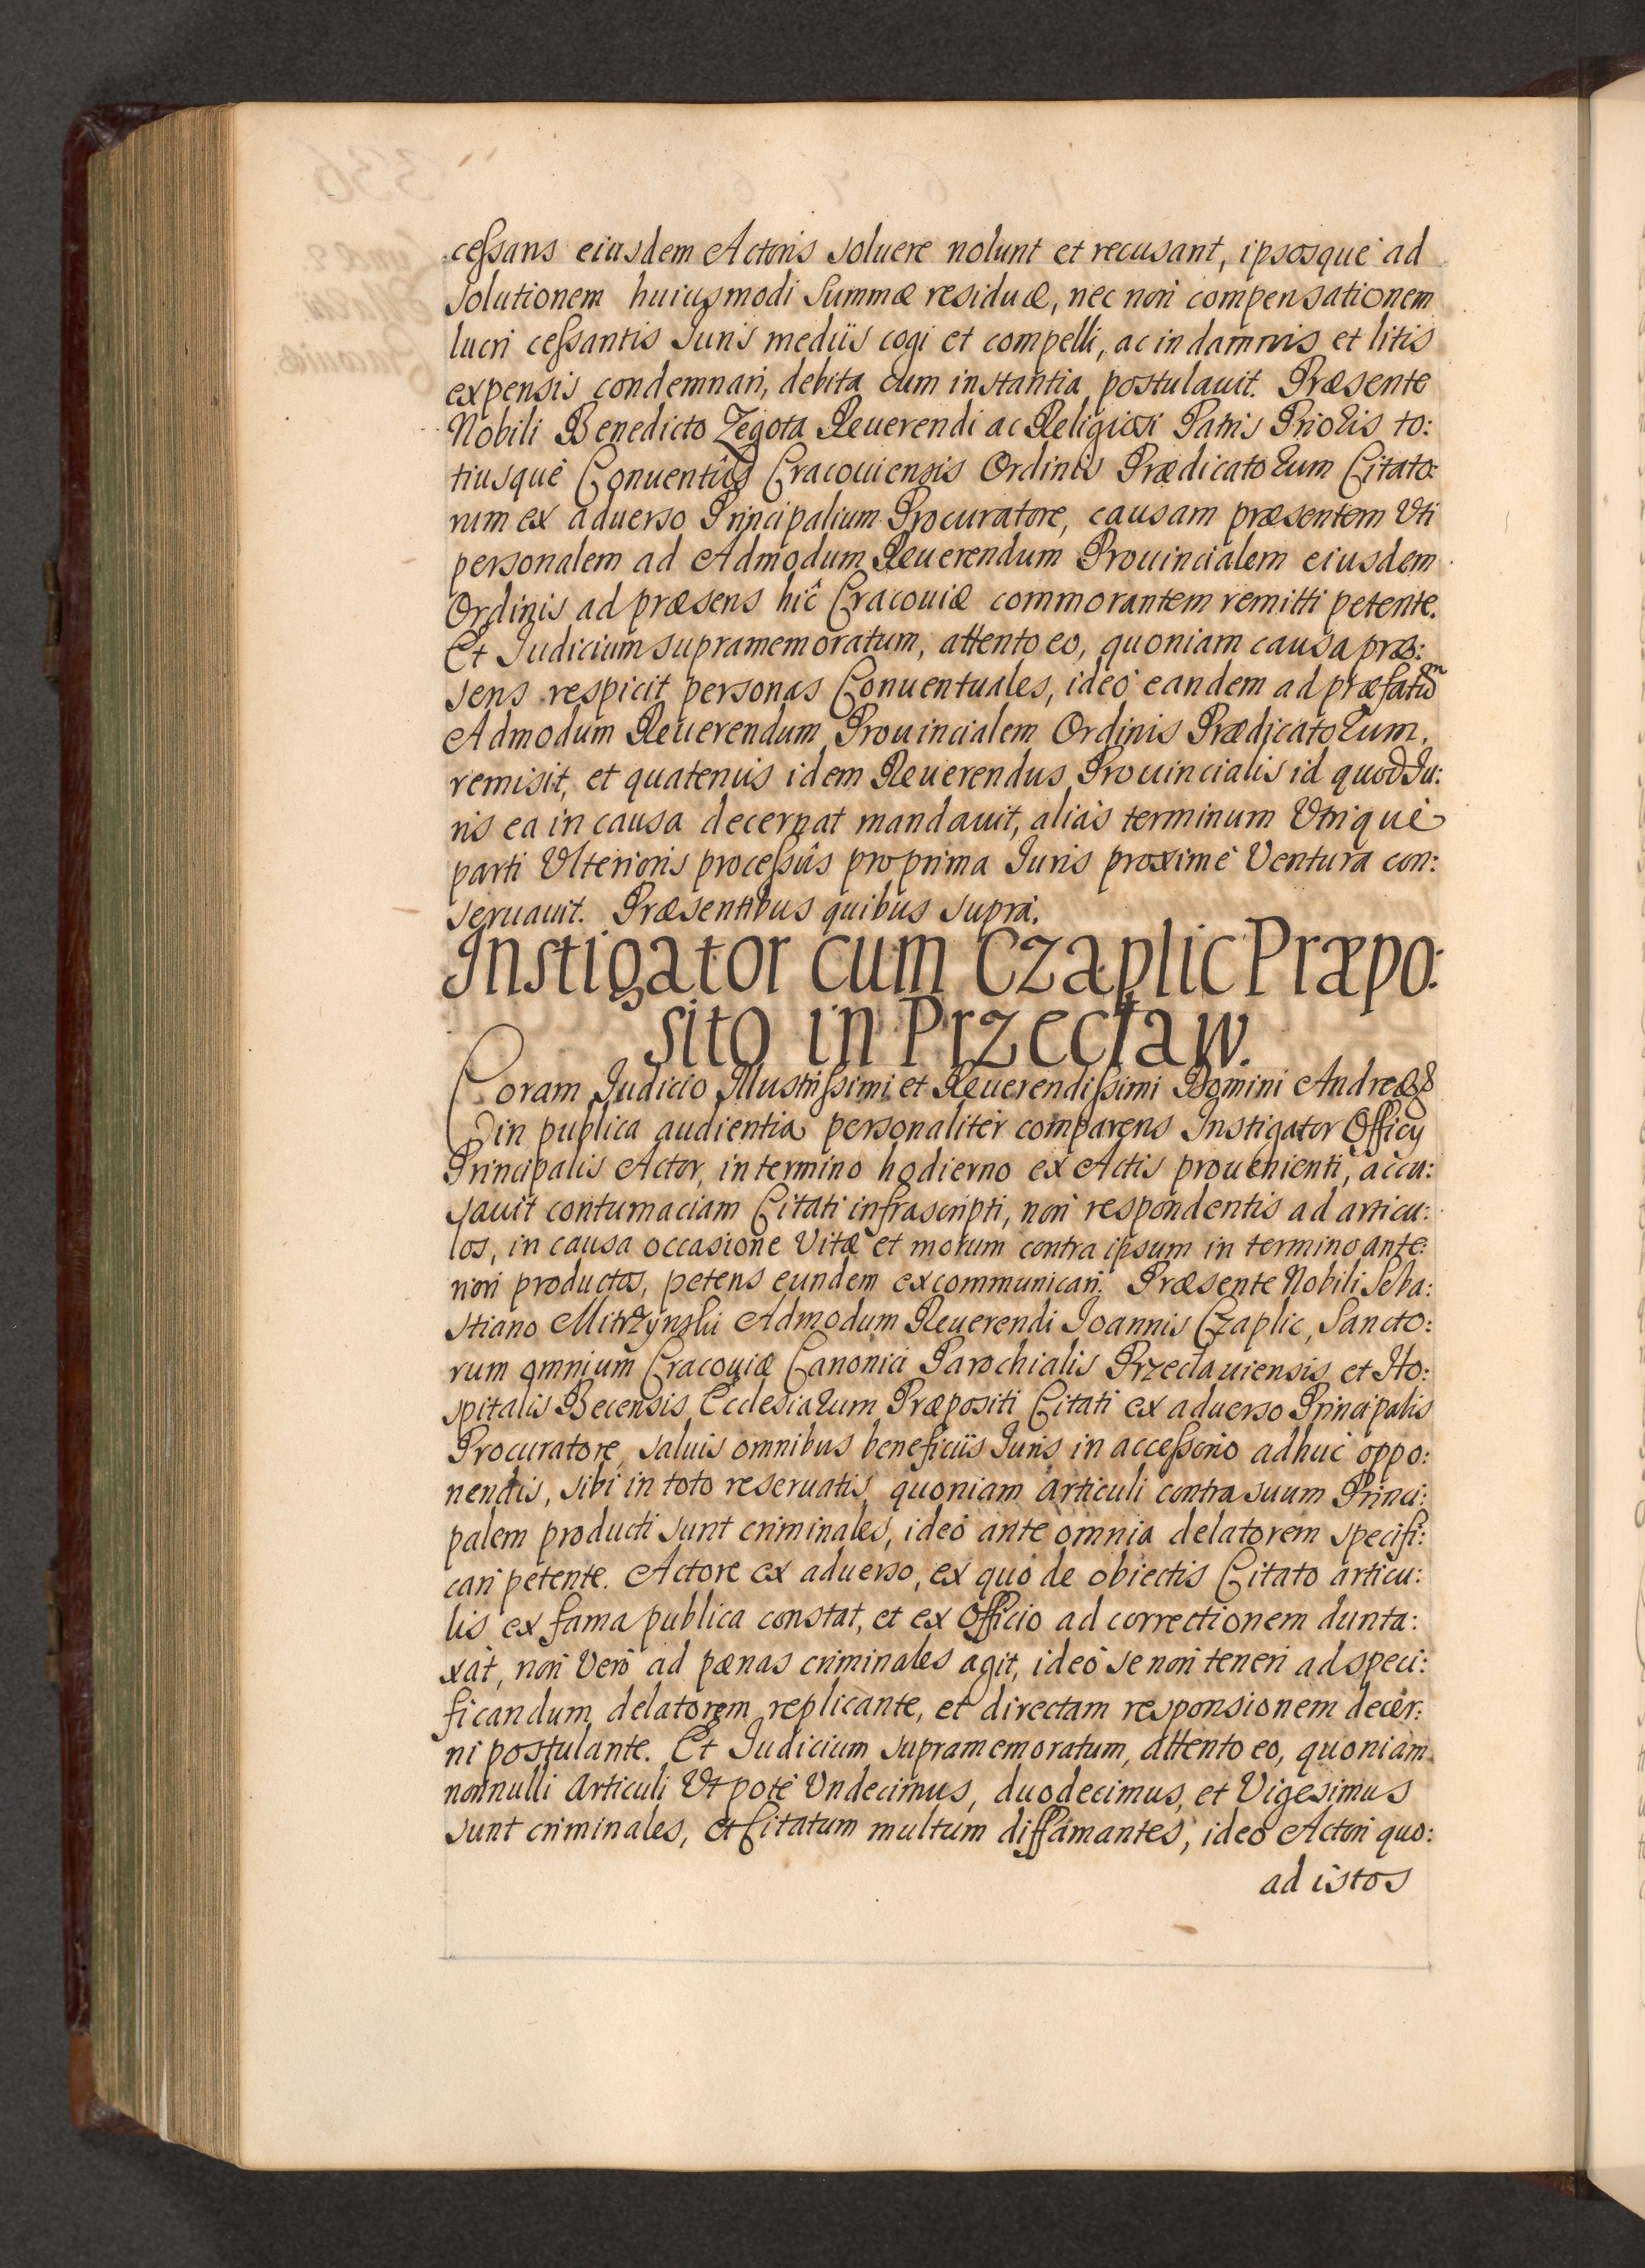 cessans eiusdem Actoris soluere nolunt et recusant, ipsosque ad
solutionem huiusmodi summæ residuæ, nec non compensationem
lucri cessantis Iuris mediis cogi et compelli, ac in damnis et litis
expensis condemnari, debita cum instantia postulauit. Præsente
Nobili Benedicto Zegota Reuerendi ac Religiosi Patris Prioris to:
tiusque Conuentûs Cracouiensis Ordinis Prædicatorum Citato:
rum ex aduerso Principalium Procuratore, causam præsentem Vti
personalem ad Admodum Reuerendum Prouincialem eiusdem
Ordinis ad præsens hîc Cracouiæ commorantem remitti petente.
Et Iudicium supramemoratum, attento eo, quoniam causa præ:
sens respicit personas Conuentuales, ideò eandem ad præfatum
Admodum Reuerendum Prouincialem Ordinis Prædicatorum,
remisit, et quatenus idem Reuerendus Prouincialis id quod Iu:
ris ea in causa decernat mandauit, aliàs terminum Vtrique
parti Vlterioris processûs pro prima Iuris proximè Ventura con:
seruauit. Præsentibus quibus suprà.
Instigator cum Czaplic Præpo:
sito in Przecław.
Coram Iudicio Illustrissimi et Reuerendissimi Domini Andreæ &
in publica audientia personaliter comparens Instigator Officij
Principalis Actor, in termino hodierno ex Actis prouenienti, accu:
sauit contumaciam Citati infrascripti, non respondentis ad articu:
los, in causa occasione Vitæ et morum contra ipsum in termino ante:
riori productos, petens eundem excommunicari. Præsente Nobili Seba:
stiano Mitrzynski Admodum Reuerendi Ioannis Czaplic, Sancto:
rum omnium Cracouiæ Canonici Parochialis Przeclauiensis et Ho:
spitalis Becensis Ecclesiarum Præpositi Citati ex aduerso Principalis
Procuratore, saluis omnibus beneficiis Iuris in accessorio adhuc oppo:
nendis, sibi in toto reseruatis, quoniam articuli contra suum Princi:
palem producti sunt criminales, ideò ante omnia delatorem specifi:
cari petente. Actore ex aduerso, ex quo de obiectis Citato articu:
lis ex fama publica constat, et ex Officio ad correctionem dunta:
xat, non Verò ad pænas criminales agit, ideò se non teneri ad speci:
ficandum delatorem replicante, et directam responsionem decer:
ni postulante. Et Iudicium supramemoratum, attento eo, quoniam
nonnulli articuli Vtpote Vndecimus, duodecimus, et Vigesimus
sunt criminales, et Citatum multum diffamantes, ideò Actori quo:
ad istos